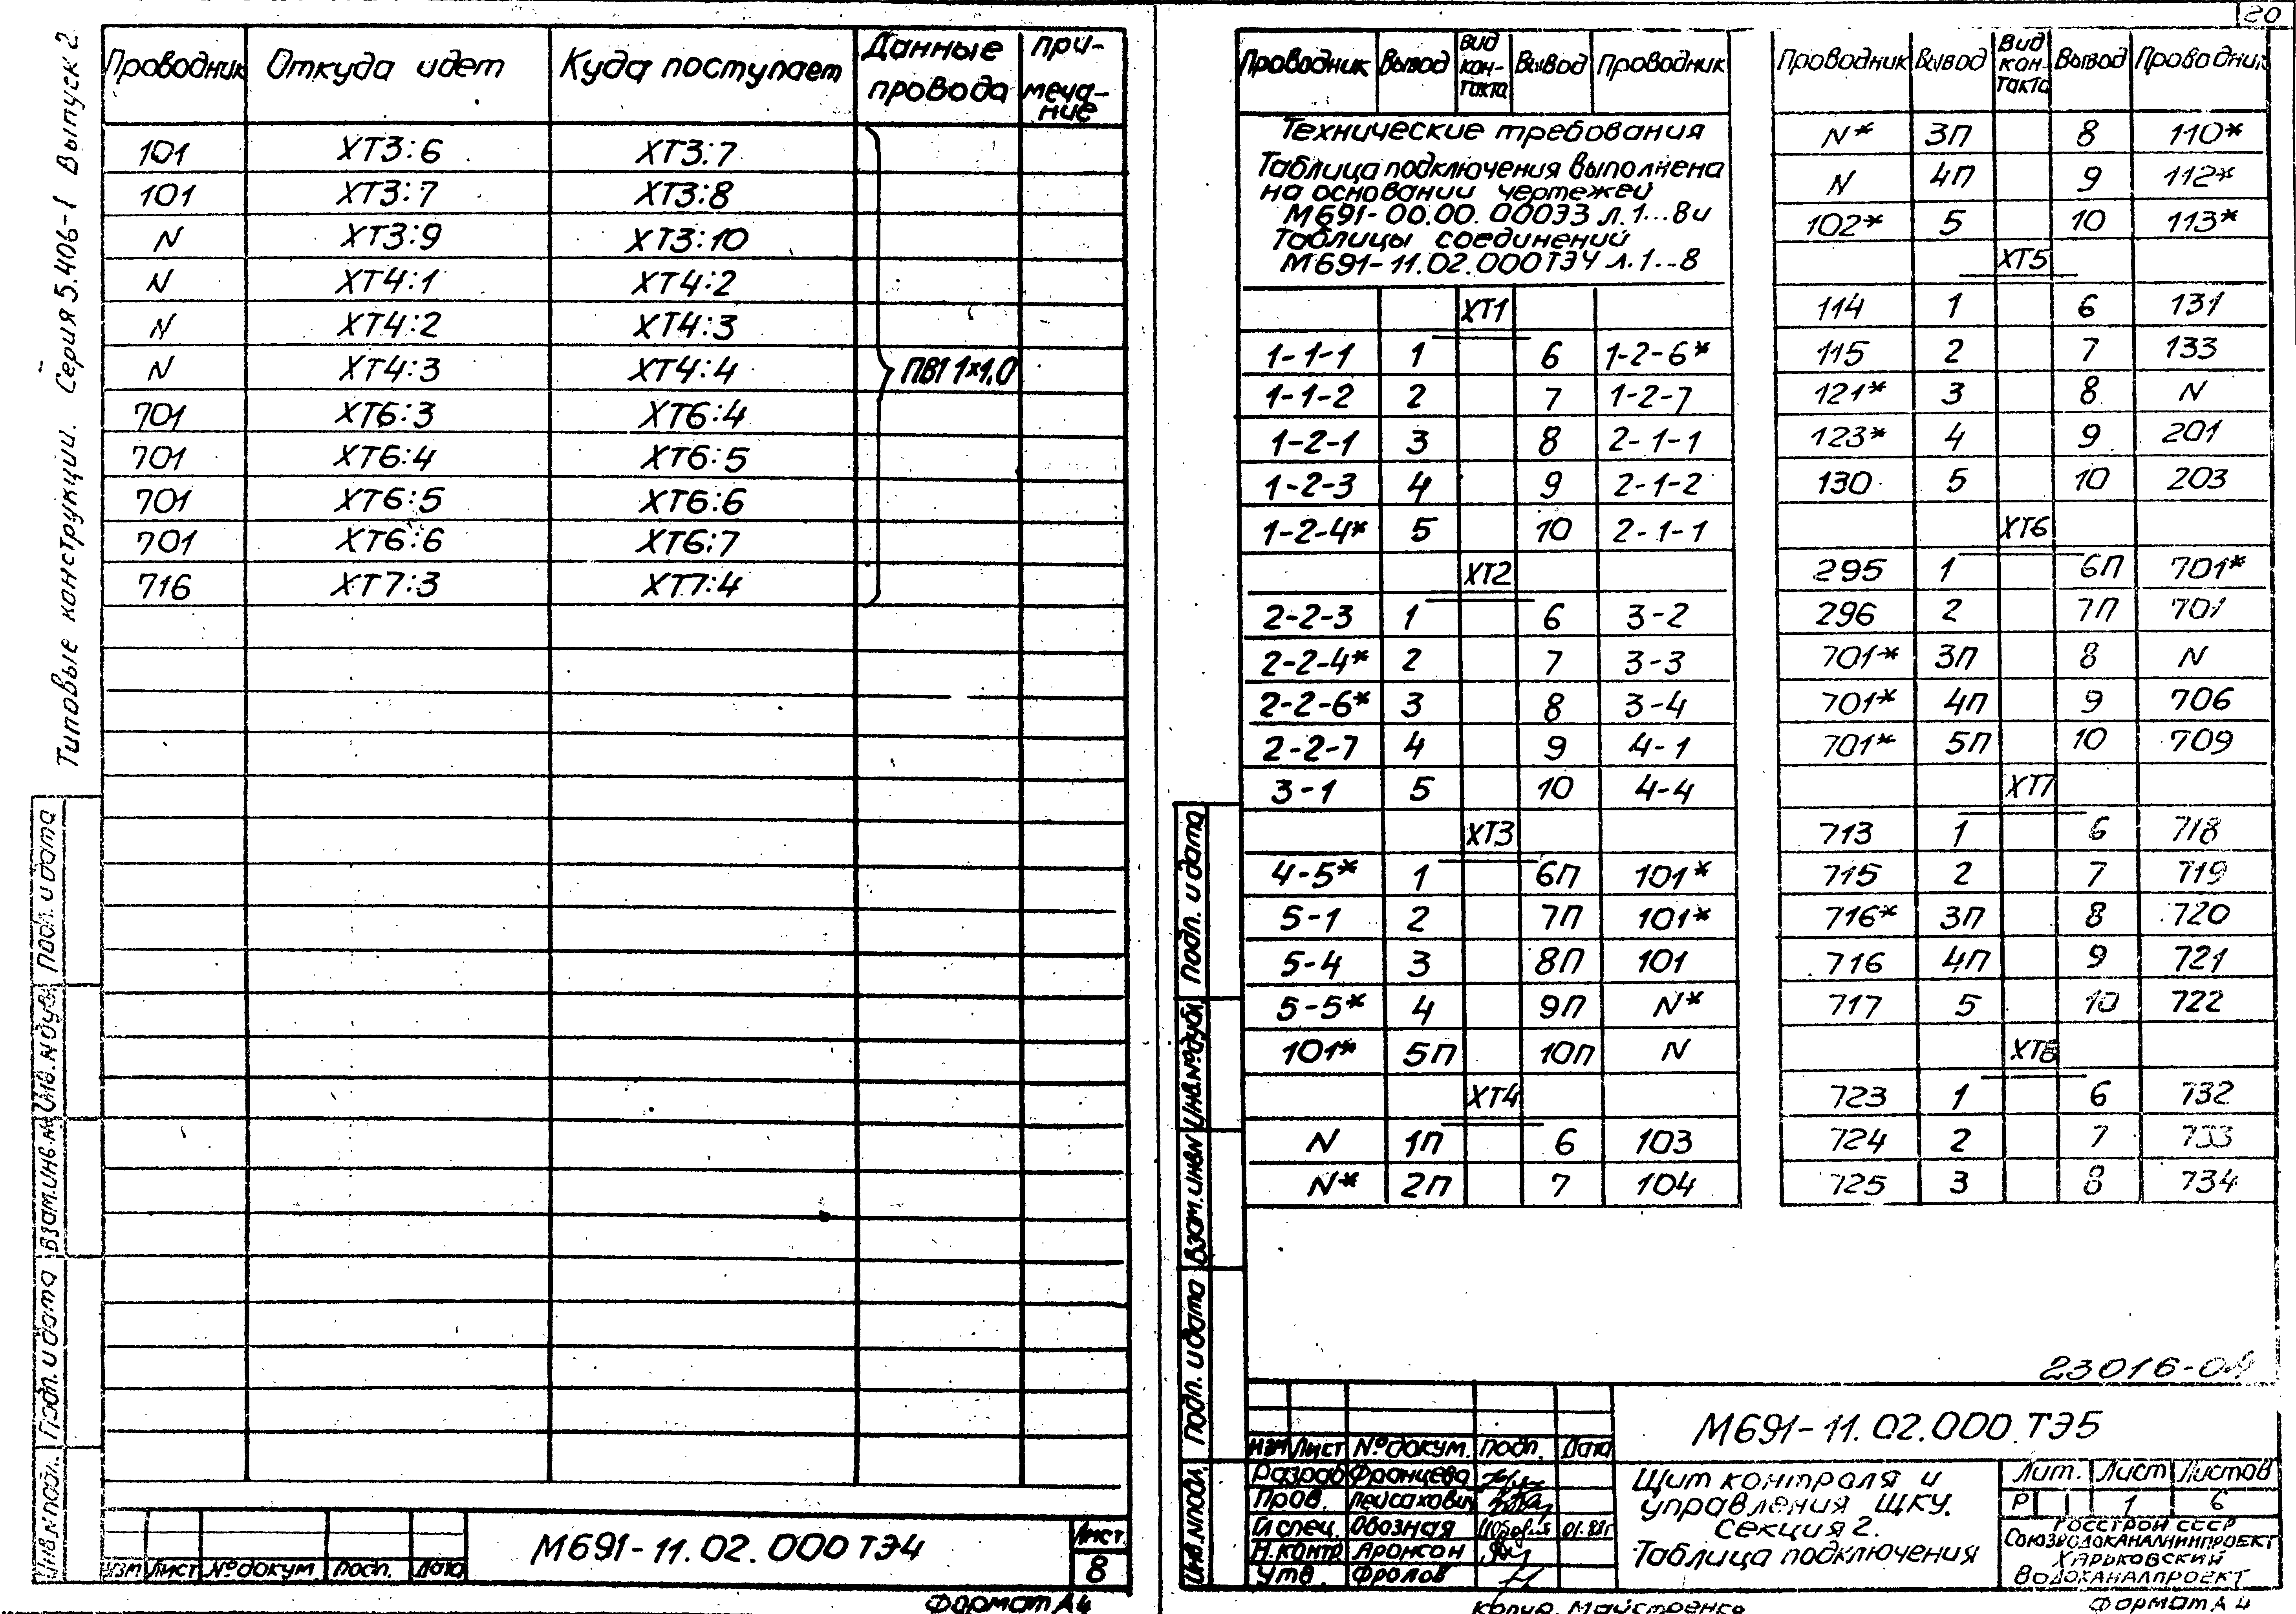 20
Типовые конструкции. Серия 5.406-1 Выпуск 2
Проводник Откуда идет Куда поступает Данные провода Примечание
101 XT3:6 XT3:7
101 XT3:7 XT3:8
N XT3:9 XT3:10
N XT4:1 XT4:2
N XT4:2 XT4:3
N XT4:3 XT4:4 ПВ1 1×1,0
701 XT6:3 XT6:4
701 XT6:4 XT6:5
701 XT6:5 XT6:6
701 XT6:6 XT6:7
716 XT7:3 XT7:4
Инв.№подл. Подп. и дата Взам.инв.№ Инв.№дубл. Подп. и дата
Изм Лист №докум Подп. Дата
М691-11.02.000ТЭ4
Лист
8
Формат А4
Проводник Вывод Вид контакта Вывод Проводник
Технические требования
Таблица подключения выполнена
на основании чертежей
М691-00.00.000ЭЗ л.1...8и
Таблицы соединений
М691-11.02.000ТЭ4 л.1...8
XT1
1-1-1 1 6 1-2-6*
1-1-2 2 7 1-2-7
1-2-1 3 8 2-1-1
1-2-3 4 9 2-1-2
1-2-4* 5 10 2-1-1
XT2
2-2-3 1 6 3-2
2-2-4* 2 7 3-3
2-2-6* 3 8 3-4
2-2-7 4 9 4-1
3-1 5 10 4-4
XT3
4-5* 1 6П 101*
5-1 2 7П 101*
5-4 3 8П 101
5-5* 4 9П N*
101* 5П 10П N
XT4
N 1П 6 103
N* 2П 7 104
Проводник Вывод Вид контакта Вывод Проводник
N* 3П 8 110*
N 4П 9 112*
102* 5 10 113*
XT5
114 1 6 131
115 2 7 133
121* 3 8 N
123* 4 9 201
130 5 10 203
XT6
295 1 6П 701*
296 2 7П 701
701* 3П 8 N
701* 4П 9 706
701* 5П 10 709
XT7
713 1 6 718
715 2 7 719
716* 3П 8 720
716 4П 9 721
717 5 10 722
XT8
723 1 6 732
724 2 7 733
725 3 8 734
Инв.№подл. Подп. и дата Взам.инв.№ Инв.№дубл. Подп. и дата
23016-04
М691-11.02.000.ТЭ5
Изм Лист №докум. Подп. Дата
Разраб Францева
Пров. Пейсахович
Гл.спец. Обозная 01.88г
Н.контр Аронсон
Утв. Фролов
Щит контроля и
управления ЩКУ.
Секция 2.
Таблица подключения
Лит. Лист Листов
Р 1 6
Госстрой СССР
Союзводоканалниипроект
Харьковский
Водоканалпроект
Копир. Майстренко
Формат А4